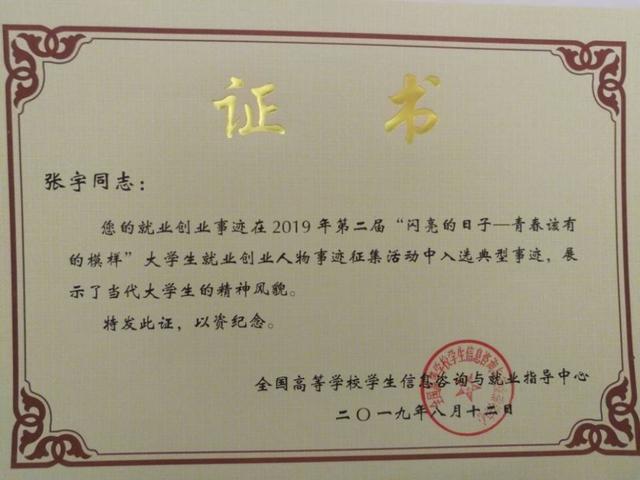 证书
张宇同志：
您的就业创业事迹在2019年第二届“闪亮的日子—青春该有
的模样”大学生就业创业人物事迹征集活动中入选典型事迹，展
示了当代大学生的精神风貌。
特发此证，以资纪念。
全国高等学校学生信息咨询与就业指导中心
二〇一九年八月十二日